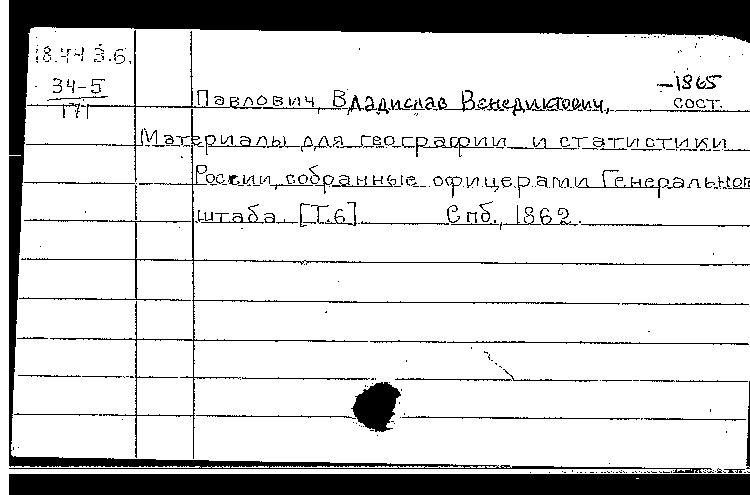 18.44 3.6.
34-5
171
-1865
Павлович, Владислав Венедиктович, сост.
Материалы для географии и статистики
России, собранные офицерами Генерального
штаба. [Т.6] Спб., 1862.